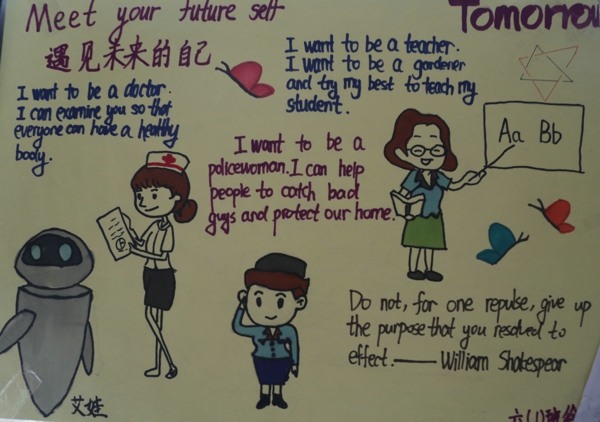 Meet your future self
遇见未来的自己
I want to be a doctor.
I can examine you so that
everyone can have a healthy
body.
I want to be a teacher.
I want to be a gardener
and try my best to teach my
student.
Aa Bb
I want to be a
policewoman. I can help
people to catch bad
guys and protect our home.
Do not, for one repulse, give up
the purpose that you resolved to
effect.——William Shakespear
艾娃